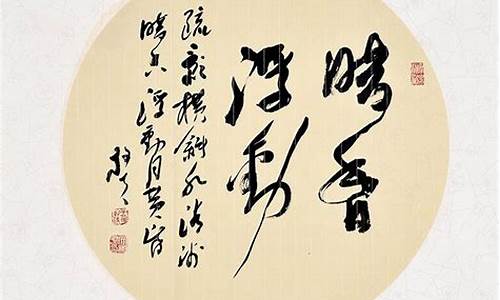 暗香
浮動
疏影橫斜水清淺
暗香浮動月黃昏